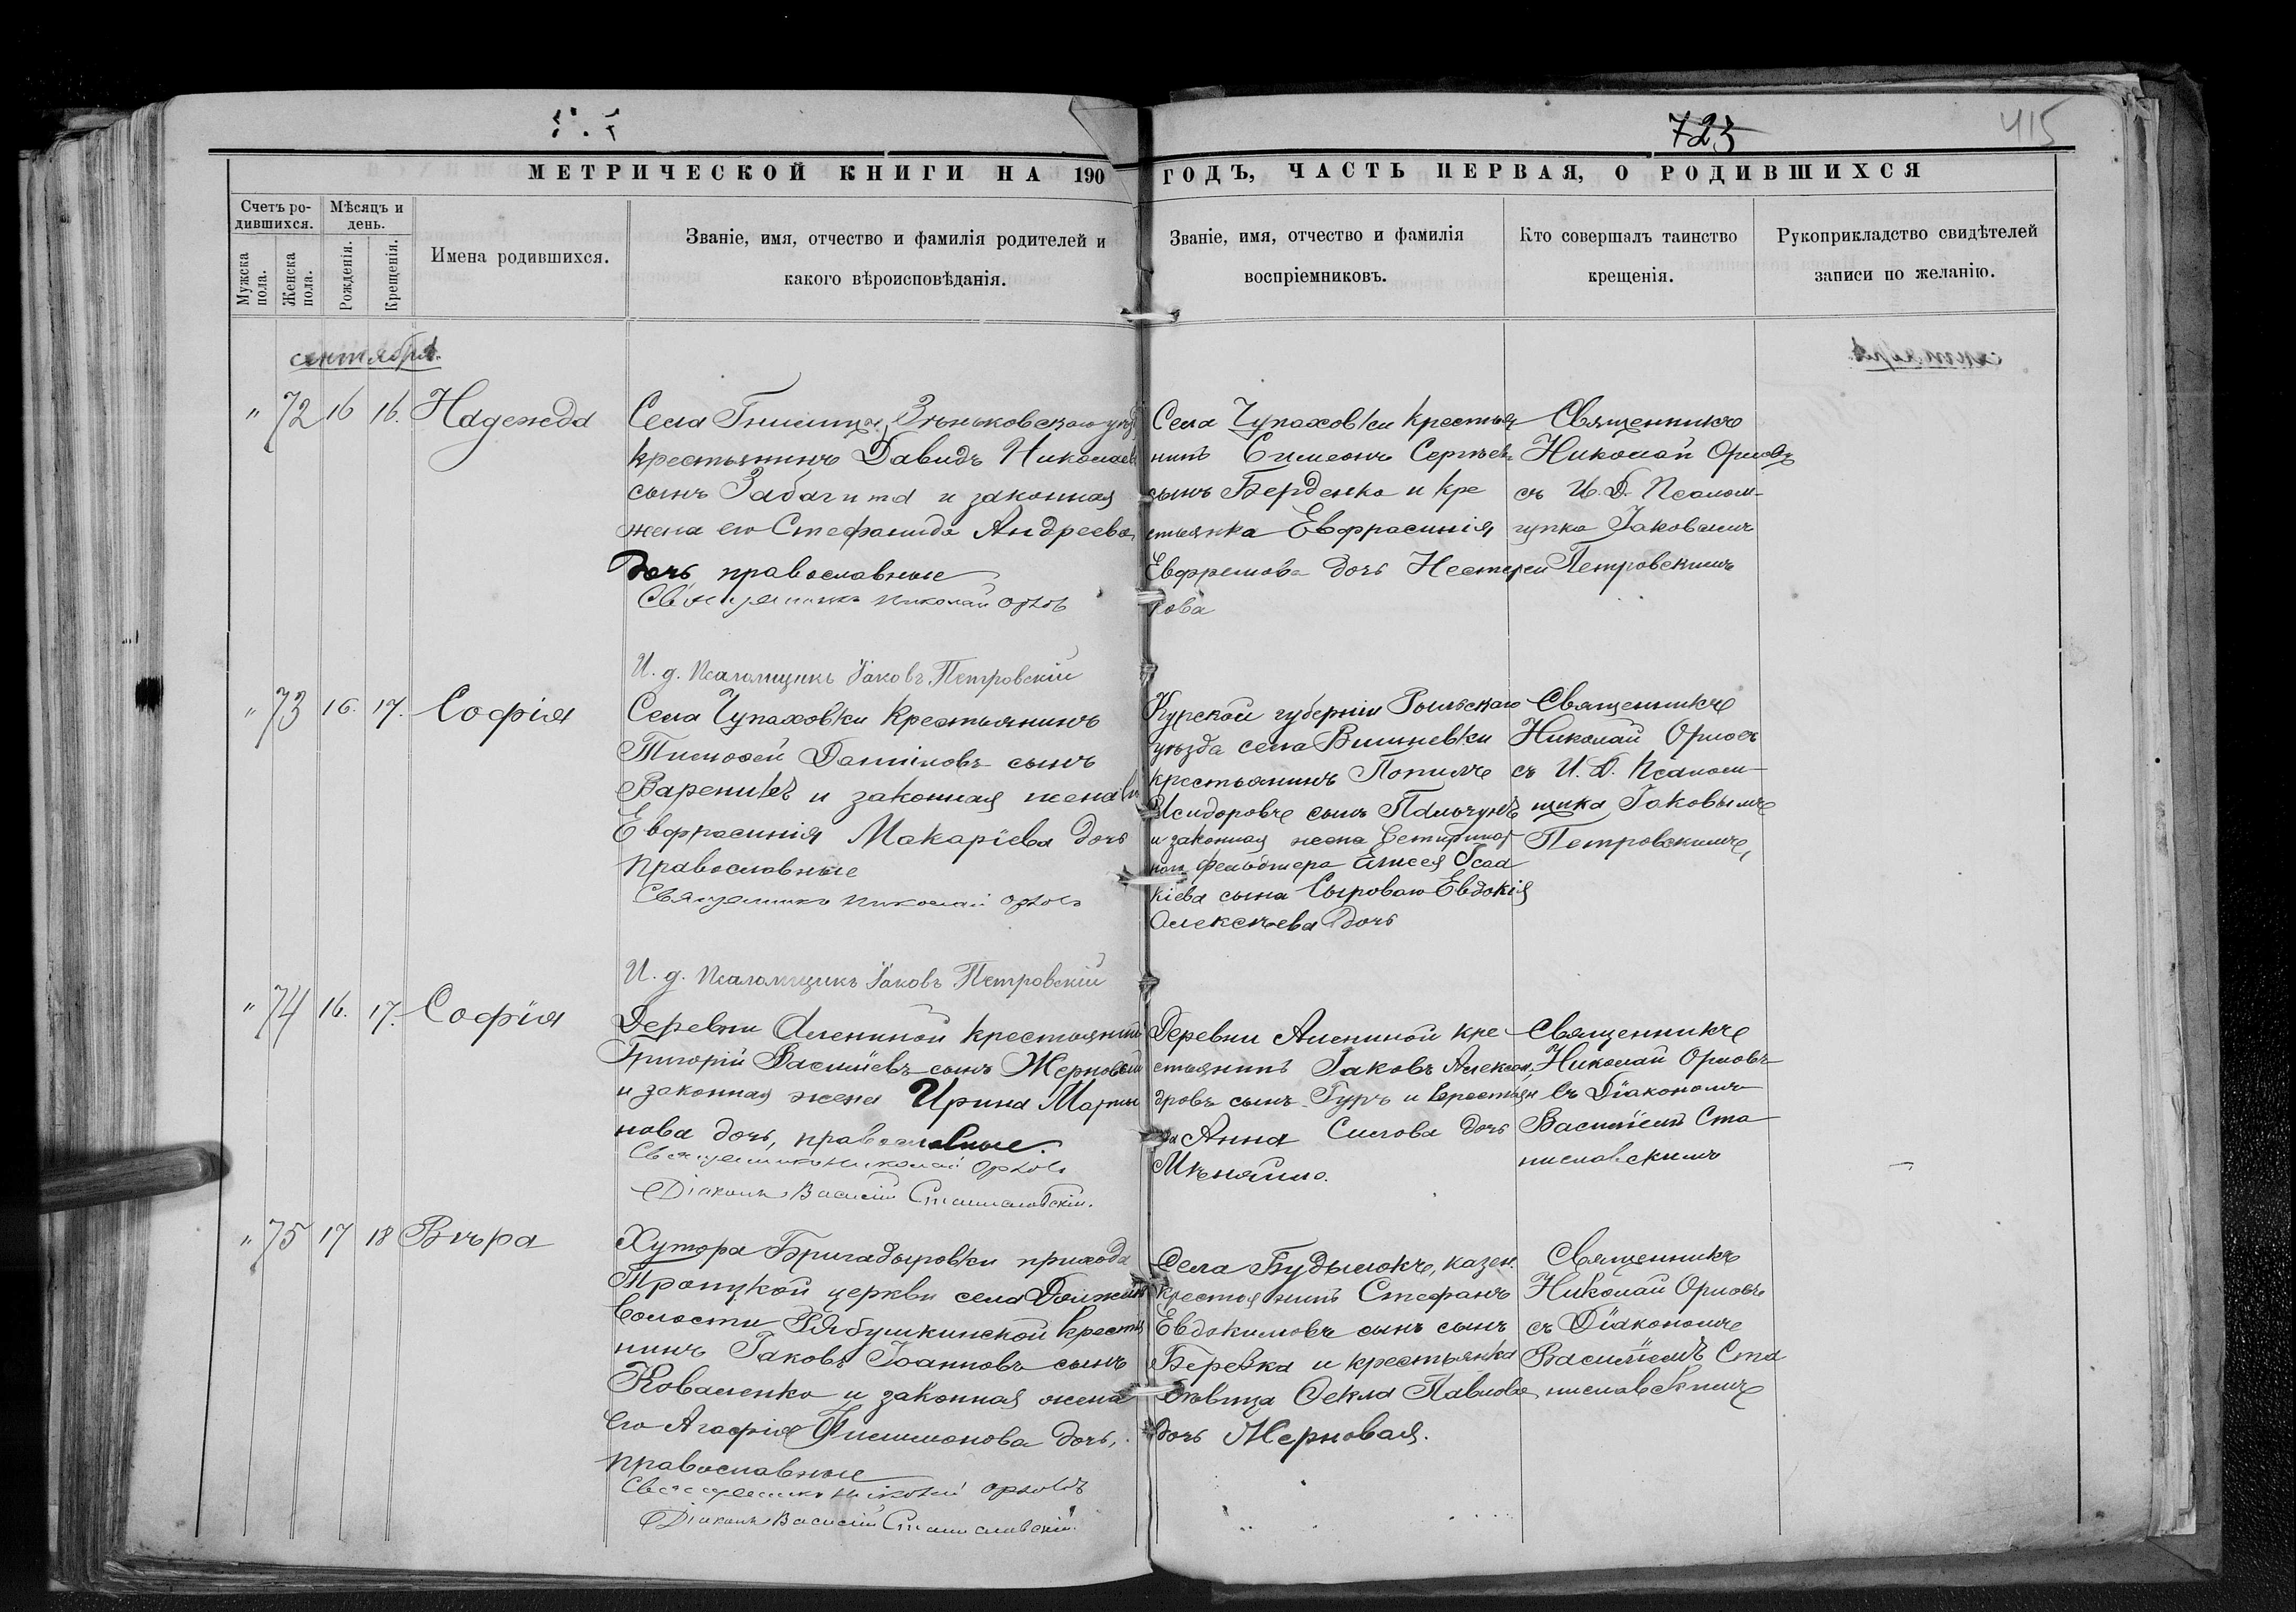 723
415
МЕТРИЧЕСКОЙ КНИГИ НА 190 ГОДЪ, ЧАСТЬ ПЕРВАЯ, О РОДИВШИХСЯ
Счетъ ро-
дившихся.
Мужска
пола.
Женска
пола.
Мѣсяцъ и
день.
Рожденія.
Крещенія.
Имена родившихся.
Званіе, имя, отчество и фамилія родителей и
какого вѣроисповѣданія.
Званіе, имя, отчество и фамилія
воспріемниковъ.
Кто совершалъ таинство
крещенія.
Рукоприкладство свидѣтелей
записи по желанію.
сентября.
" 72 16 16. Надежда
Села Зѣньковскаго
крестьянинъ Давидъ Николаевъ
сынъ и законная
жена его Стефанида Андреева
дочь, православные
Священникъ Николай Орловъ
И. д. Псаломщикъ Іаковъ Петровскій
Села Чупаховки крестья
нинъ Симеонъ Сергѣевъ
сынъ Берденко и кре
стьянка Евфрасинія
Евфремова дочь Нестере
кова
Священникъ
Николай Орловъ
съ И. Д. Псалом-
щика Іаковомъ
Петровскимъ
" 73 16. 17. Софія
Села Чупаховки крестьянинъ
Тимофей Даніиловъ сынъ
Вареникъ и законная жена
Евфрасинія Макаріева дочь
православные
Священникъ Николай Орловъ
И. д. Псаломщикъ Іаковъ Петровскій
Курской губерніи Рыльскаго
уѣзда села Вишневки
крестьянинъ
Исидоровъ сынъ Пальчунъ
и законная жена
фельдшера Елисея Исаа
кіева сына Сыроваго Евдокія
Алексѣева дочь
Священникъ
Николай Орловъ
съ И. Д. Псалом-
щика Іаковымъ
Петровскимъ,
" 74 16. 17. Софія
Деревни Алениной крестьянинъ
Григорій Василіевъ сынъ Жерновый
и законная жена Ирина Марты
нова дочь, православные.
Священникъ Николай Орловъ
Діаконъ Василій Станиславскій.
Деревни Алениной кре
стьянинъ Іаковъ Алексан
дровъ сынъ Гуръ и крестьян
ка Анна Силова дочь
Мѣняйло.
Священникъ
Николай Орловъ
съ Діакономъ
Василіемъ Ста
ниславскимъ
" 75 17 18 Вѣра
Хутора Бригадыровки прихода
Троицкой церкви села
волости Рябушкинской крестья
нинъ Іаковъ Іоанновъ сынъ
Коваленко и законная жена
его Агафія Филимонова дочь,
православные
Священникъ Николай Орловъ
Діаконъ Василій Станиславскій.
Села Будылокъ, казен.
крестьянинъ Стефанъ
Евдокимовъ сынъ сынъ
Березка и крестьянка
дѣвица Ѳекла Павлова
дочь Жерновая.
Священникъ
Николай Орловъ
съ Діакономъ
Василіемъ Ста
ниславскимъ